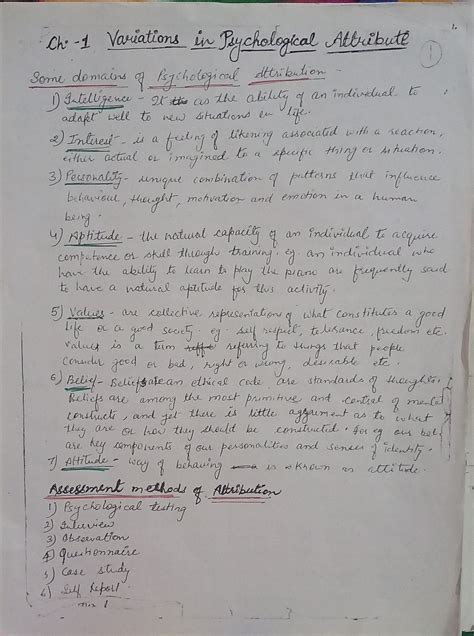 1.
Ch-1 Variations in Psychological Attribute
1
Some domains of Psychological Attribution -
1) Intelligence - It is the ability of an individual to
adapt well to new situations in life.
2) Interest - is a feeling of likening associated with a reaction,
either actual or imagined to a specific thing or situation.
3) Personality - unique combination of patterns that influence
behaviour, thought, motivation and emotion in a human
being.
4) Aptitude - the natural capacity of an individual to acquire
competence or skill through training. eg. an individual who
have the ability to learn to play the piano are frequently said
to have a natural aptitude for this activity.
5) Values - are collective representations of what constitutes a good
life or a good society. eg. self respect, tolerance, freedom etc.
Values is a term referring to things that people
consider good or bad, right or wrong, desirable etc.
6) Belief - Beliefs are an ethical code, are standards of thoughts.
Beliefs are among the most primitive and central of mental
constructs, and yet there is little agreement as to what
they are or how they should be constructed. for eg our
are key components of our personalities and senses of identity.
7) Attitude - way of behaving is known as attitude.
Assessment methods of Attribution
1) Psychological testing
2) Interview
3) Observation
4) Questionnaire
5) Case study
6) Self Report